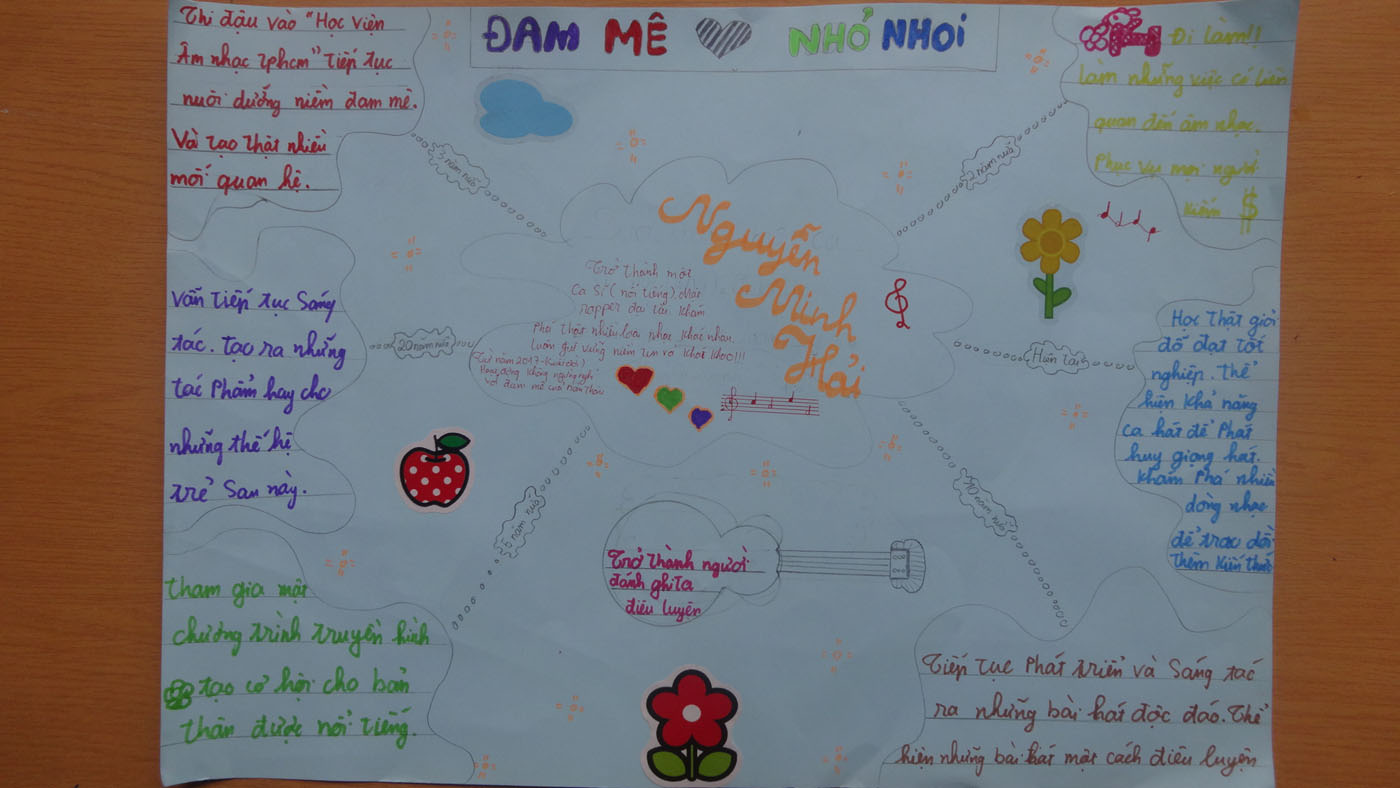 ĐAM MÊ NHỎ NHOI
Thi đậu vào "Học viện
Âm nhạc tphcm" Tiếp tục
nuôi dưỡng niềm đam mê.
Và tạo thật nhiều
mối quan hệ.
3 năm nữa
Đi làm!!
làm những việc có liên
quan đến âm nhạc.
Phục vụ mọi người
Kiếm $
2 năm nữa
Nguyễn
Minh
Hải
Trở thành một
Ca Sĩ (nổi tiếng). Một
rapper đại tài. Khám
Phá thật nhiều loại nhạc khác nhau.
Luôn giữ vững niềm tin và
(Từ năm 2017-
Hoạt động không ngừng nghỉ
với đam mê
Vẫn tiếp tục Sáng
tác. tạo ra những
tác Phẩm hay cho
những thế hệ
trẻ Sau này.
20 năm nữa
Hiện tại
Học thật giỏi
đỗ đạt tốt
nghiệp. Thể
hiện khả năng
ca hát để Phát
huy giọng hát.
Khám Phá nhiều
dòng nhạc
để trao dồi
thêm kiến thức
5 năm nữa
10 năm nữa
Trở thành người
đánh ghita
điêu luyện
tham gia một
chương trình truyền hình
tạo cơ hội cho bản
thân được nổi tiếng.
Tiếp tục Phát triển và Sáng tác
ra những bài hát độc đáo. Thể
hiện những bài hát một cách điêu luyện